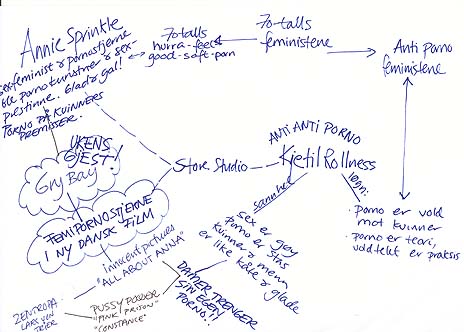 Annie Sprinkle
sexfeminist & pornostjerne
ble pornoturistner & sex-
prestinne. Glad & gal!
PORNO PÅ KVINNERS
PREMISSER.
70-talls
hurra-feel-
good-soft-porn
70-talls
feministene
Anti porno
feministene
UKENS
GJEST!
Gry Bay
Store Studio
ANTI ANTI PORNO
Kjetil Rollness
sannhet
løgn:
FEMIPORNOSTJERNE
I NY DANSK FILM
sex er gøy
porno er stas
kvinner & menn
er like kåte & glade
porno er vold
mot kvinner
porno er teori,
voldtekt er praksis
innocent pictures
"ALL ABOUT ANNA"
DAMER TRENGER
SIN EGEN
PORNO!!
ZENTROPA
LARS VON
TRIER
PUSSY POWER
"PINK PRISON"
"CONSTANCE"